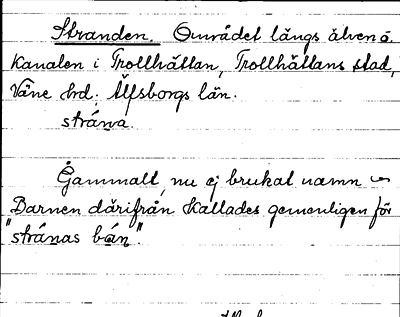 Stranden. Området längs älven o.
Kanalen i Trollhättan, Trollhättans stad,
Väne hd. Älfsborgs län.
strána.
Gammalt, nu ej brukat namn ~
Barnen därifrån kallades gemenligen för
"stránas bán".